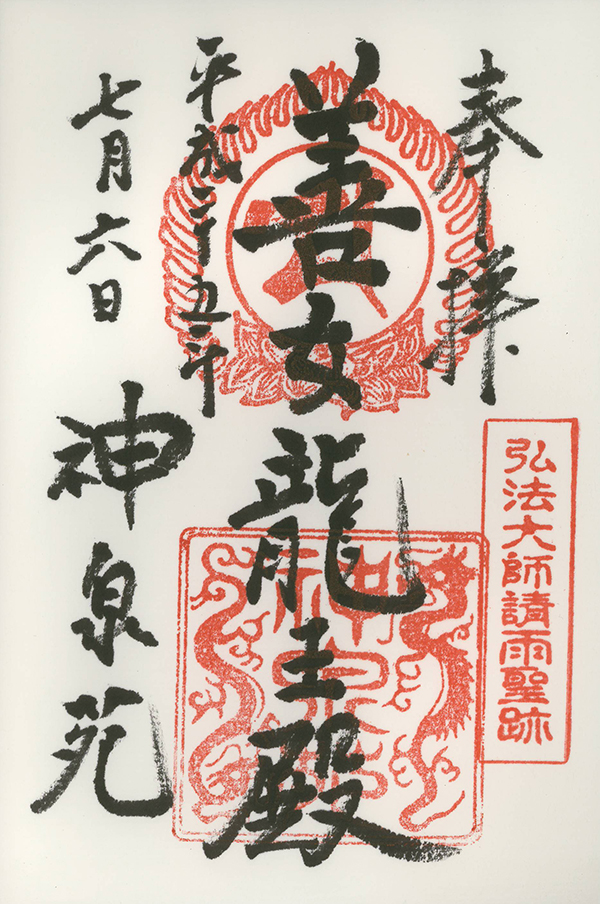 奉拝
弘法大師請雨聖跡
善女龍王殿
平成二十五年
七月六日
神泉苑
神泉苑